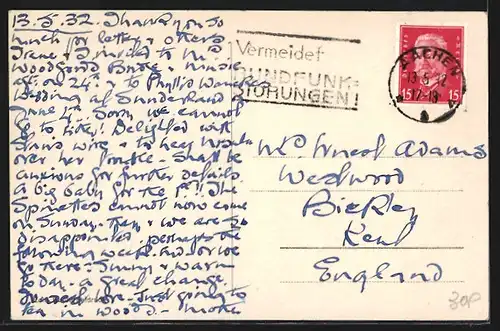 13.5.32. Thank you so
much for letter & others
Irene & I invited to Mrs
Woodford Bridge & music
on 24th to Phyllis
Wedding at Sunderland on
June 4th. Sorry we cannot
go to either! Delighted with
wire & to hear
over her Shall be
anxious for further details
A big baby for the 1st!! The
cannot now come
on Sunday. They & we are so
disappointed. perhaps the
following week-end or we
go there. Sunny & warm
today - a great change.
first going to
tea in
Vermeidet
RUNDFUNK-
STÖRUNGEN!
AACHEN
13.5.32
17-18
15 15
Mrs Ernest Adams
Westwood
Bickley
Kent
England
30P